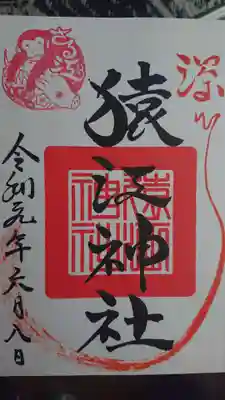 深川
猿江神社
さるえ
令和元年六月八日